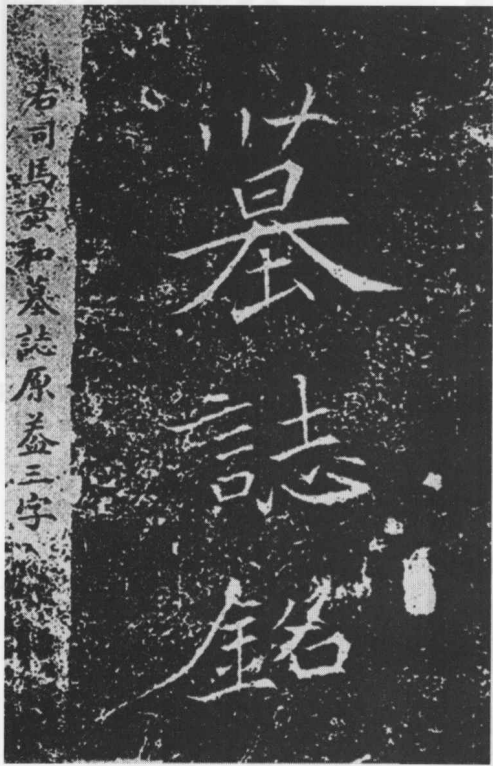 墓誌銘
右司馬景和墓誌原蓋三字